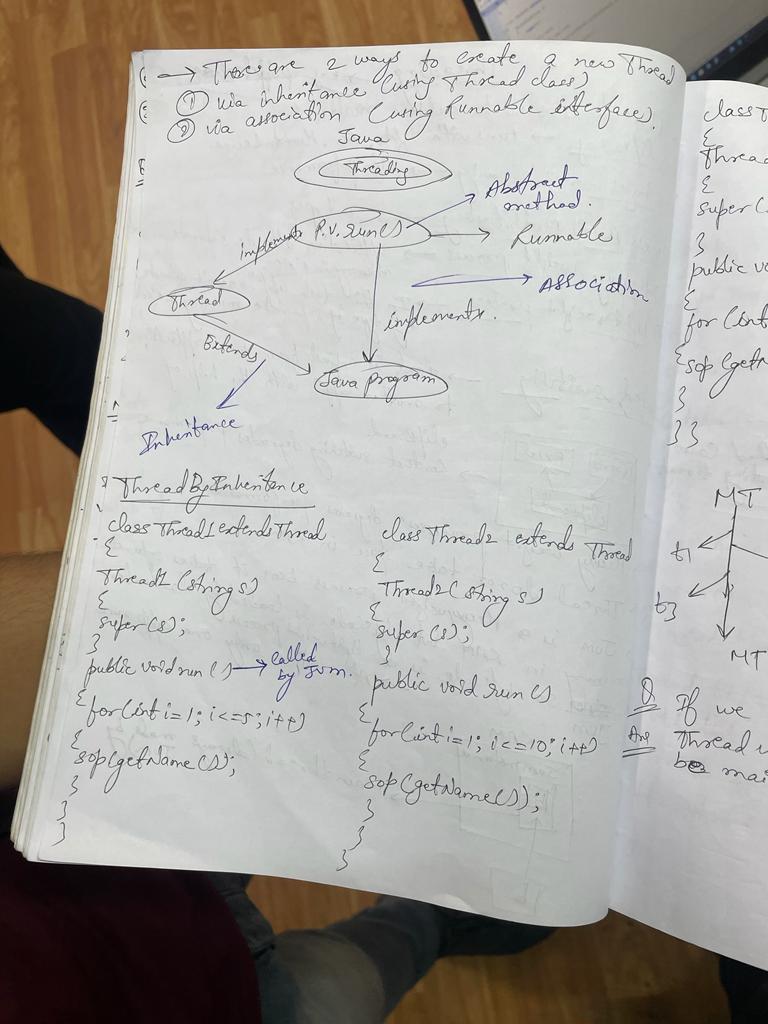 → There are 2 ways to create a new Thread
① via inheritance (using Thread class)
② via association (using Runnable interface).
Java
Threading
Abstract
method.
implements
P.V. run()
Runnable
Association
Thread
implements.
Extends
Java program
Inheritance
ThreadByInheritence
class Thread1 extends Thread
{
Thread1 (string s)
{
super(s);
}
public void run () → called
by JVM.
{ for(int i=1; i<=5; i++)
{
sop(getName());
}
}
}
class Thread2 extends Thread
{
Thread2 (string s)
{
super(s);
}
public void run ()
{
for(int i=1; i<=10; i++)
{
sop(getName());
}
}
}
class T
{
Thread
{
super(
}
public vo
{
for (int
{ sop(getN
}
} }
MT
t1
t3
MT
Q If we
Ans Thread
be mai